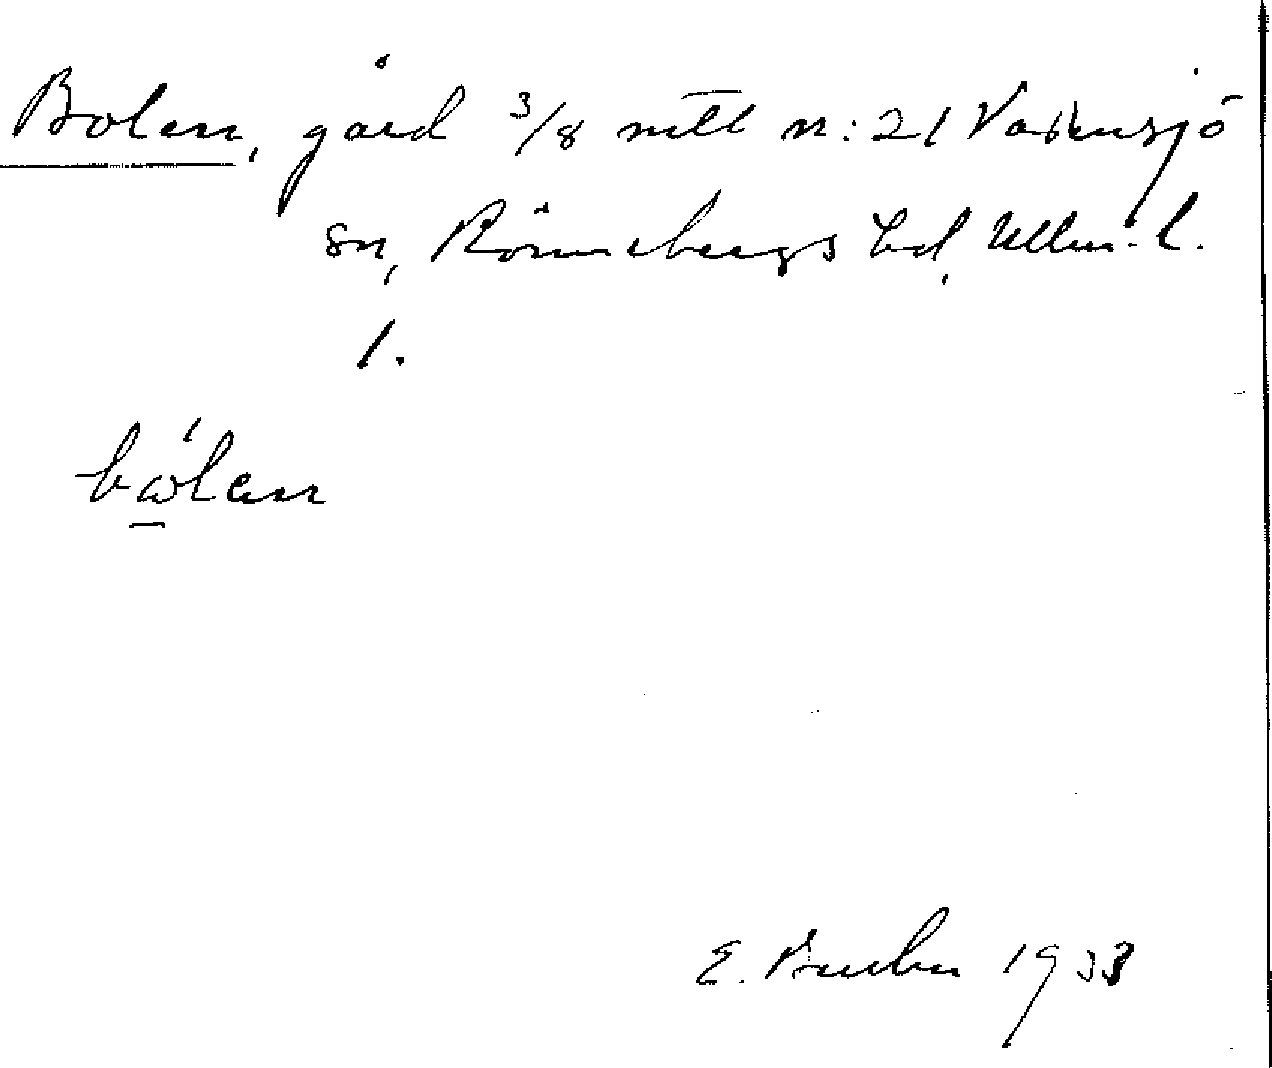 Bolen, gård 3/8 mtl n:21 Vattensjö
sn, Rönnebergs hd, Malm. l.
1.
bωlen
E. 1933